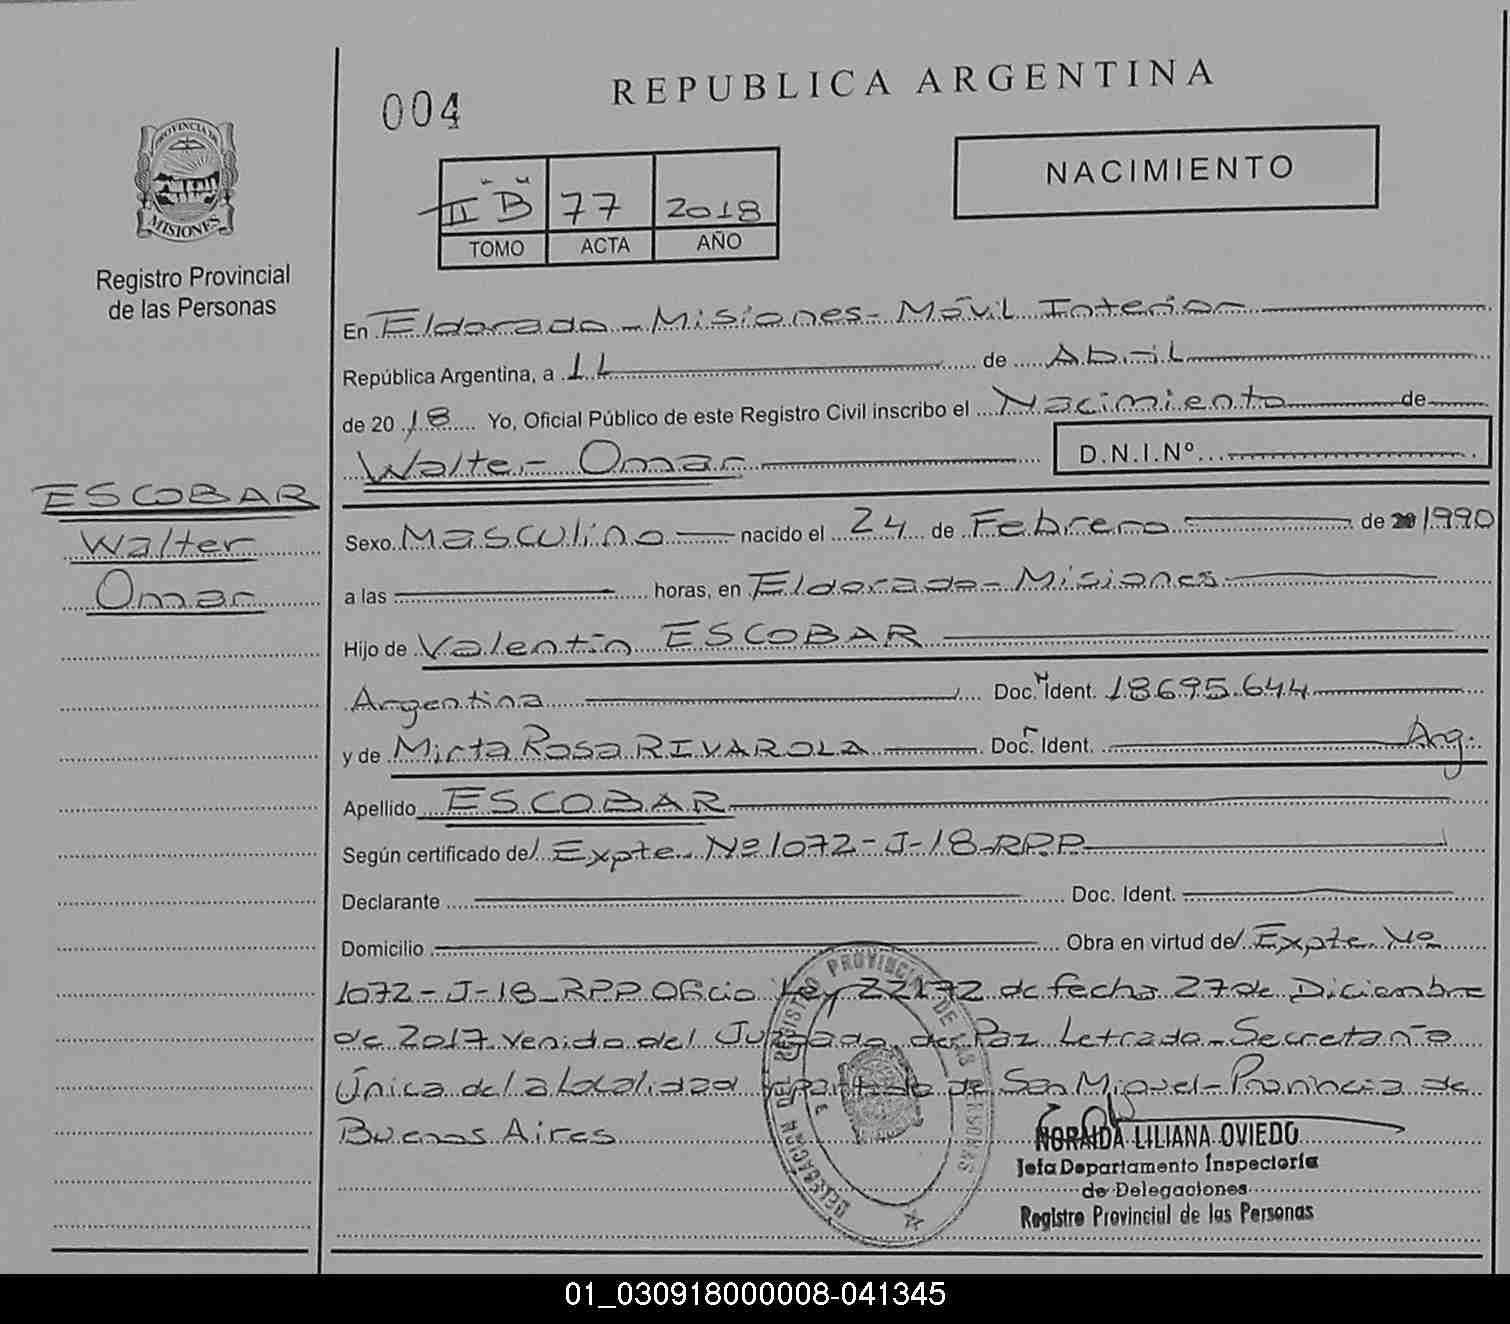 004
REPUBLICA ARGENTINA
NACIMIENTO
II "B" 77 2018
TOMO ACTA AÑO
PROVINCIA DE
MISIONES
Registro Provincial
de las Personas
ESCOBAR
Walter
Omar
En Eldorado - Misiones - Móvil Interior
República Argentina, a 11 de Abril
de 2018 Yo, Oficial Público de este Registro Civil inscribo el Nacimiento de
Walter Omar D.N.I.Nº
Sexo Masculino nacido el 24 de Febrero de 1990
a las horas, en Eldorado - Misiones
Hijo de Valentín ESCOBAR
Argentina Doc. Ident. 18695.644
y de Mirta Rosa RIVAROLA Doc. Ident. Arg.
Apellido ESCOBAR
Según certificado del Expte. Nº 1072-J-18-RPP
Declarante Doc. Ident.
Domicilio Obra en virtud del Expte Nº
1072-J-18-RPP Oficio Ley 22172 de fecha 27 de Diciembre
de 2017 venido del Juzgado de Paz Letrado - Secretaría
Única de la Localidad y partido de San Miguel - Provincia de
Buenos Aires
DELEGACION DEL REGISTRO PROVINCIAL DE LAS PERSONAS
NORAIDA LILIANA OVIEDO
Jefa Departamento Inspectoría
de Delegaciones
Registro Provincial de las Personas
01_030918000008-041345